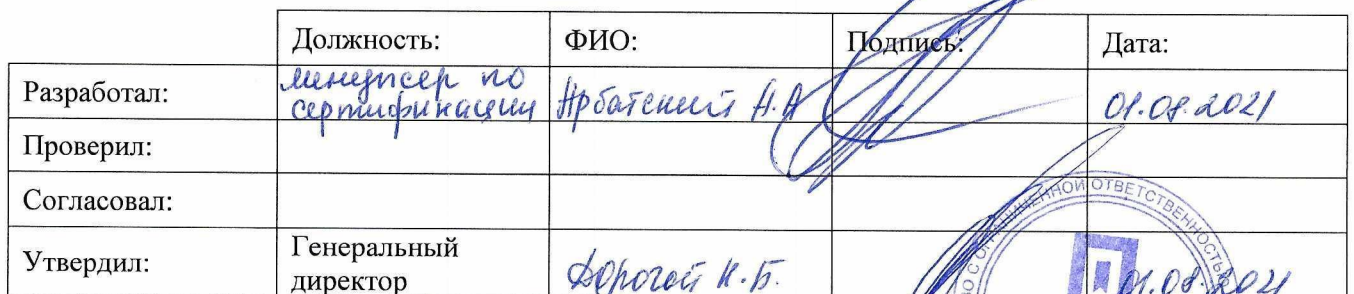 Должность: ФИО: Подпись: Дата:
Разработал: менеджер по сертификации Арбатский А.А 01.08.2021
Проверил:
Согласовал:
Утвердил: Генеральный директор Дорогой К.Б. 01.08.2021
ОГРАНИЧЕННОЙ ОТВЕТСТВЕННОСТЬЮ